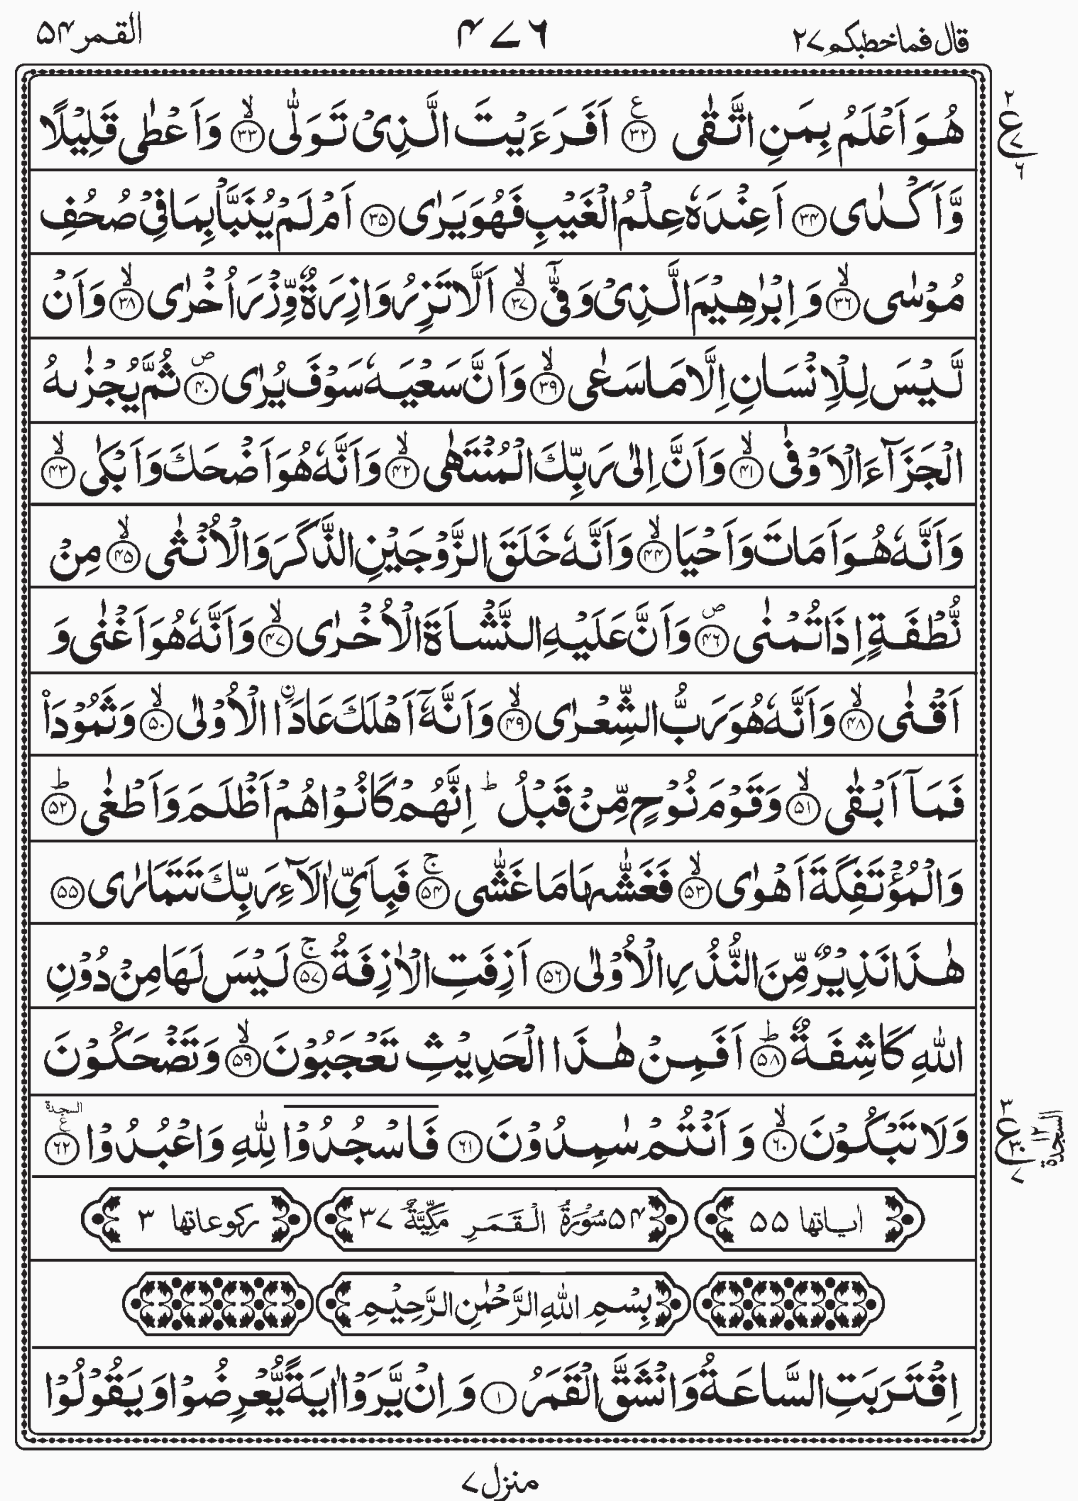 قال فما خطبكم ۲۷
۴۷۶
القمر ۵۴
هُوَ اَعْلَمُ بِمَنِ اتَّقٰى ۝۳۲ ع اَفَرَءَيْتَ الَّذِىْ تَوَلّٰى ۝۳۳ۙ وَاَعْطٰى قَلِيْلًا
وَّاَكْدٰى ۝۳۴ اَعِنْدَهٗ عِلْمُ الْغَيْبِ فَهُوَ يَرٰى ۝۳۵ اَمْ لَمْ يُنَبَّاْ بِمَا فِىْ صُحُفِ
مُوْسٰى ۝۳۶ۙ وَاِبْرٰهِيْمَ الَّذِىْ وَفّٰىٓ ۝۳۷ۙ اَلَّا تَزِرُ وَازِرَةٌ وِّزْرَ اُخْرٰى ۝۳۸ۙ وَاَنْ
لَّيْسَ لِلْاِنْسَانِ اِلَّا مَا سَعٰى ۝۳۹ۙ وَاَنَّ سَعْيَهٗ سَوْفَ يُرٰى ۝۴۰ ص ثُمَّ يُجْزٰىهُ
الْجَزَآءَ الْاَوْفٰى ۝۴۱ۙ وَاَنَّ اِلٰى رَبِّكَ الْمُنْتَهٰى ۝۴۲ۙ وَاَنَّهٗ هُوَ اَضْحَكَ وَاَبْكٰى ۝۴۳ۙ
وَاَنَّهٗ هُوَ اَمَاتَ وَاَحْيَا ۝۴۴ۙ وَاَنَّهٗ خَلَقَ الزَّوْجَيْنِ الذَّكَرَ وَالْاُنْثٰى ۝۴۵ۙ مِنْ
نُّطْفَةٍ اِذَا تُمْنٰى ۝۴۶ ص وَاَنَّ عَلَيْهِ النَّشْاَةَ الْاُخْرٰى ۝۴۷ۙ وَاَنَّهٗ هُوَ اَغْنٰى وَ
اَقْنٰى ۝۴۸ۙ وَاَنَّهٗ هُوَ رَبُّ الشِّعْرٰى ۝۴۹ۙ وَاَنَّهٗٓ اَهْلَكَ عَادَاۨ الْاُوْلٰى ۝۵۰ۙ وَثَمُوْدَا۟
فَمَآ اَبْقٰى ۝۵۱ۙ وَقَوْمَ نُوْحٍ مِّنْ قَبْلُ ؕ اِنَّهُمْ كَانُوْا هُمْ اَظْلَمَ وَاَطْغٰى ۝۵۲ؕ
وَالْمُؤْتَفِكَةَ اَهْوٰى ۝۵۳ۙ فَغَشّٰىهَا مَا غَشّٰى ۝۵۴ۚ فَبِاَىِّ اٰلَآءِ رَبِّكَ تَتَمَارٰى ۝۵۵
هٰذَا نَذِيْرٌ مِّنَ النُّذُرِ الْاُوْلٰى ۝۵۶ اَزِفَتِ الْاٰزِفَةُ ۝۵۷ۚ لَيْسَ لَهَا مِنْ دُوْنِ
اللّٰهِ كَاشِفَةٌ ۝۵۸ؕ اَفَمِنْ هٰذَا الْحَدِيْثِ تَعْجَبُوْنَ ۝۵۹ۙ وَتَضْحَكُوْنَ
وَلَا تَبْكُوْنَ ۝۶۰ۙ وَاَنْتُمْ سٰمِدُوْنَ ۝۶۱ فَاسْجُدُوْا لِلّٰهِ وَاعْبُدُوْا ۝۶۲ السجدة ع
اٰیاتها ۵۵
۵۴ سُوْرَةُ الْقَمَرِ مَكِّيَّةٌ ۳۷
رکوعاتها ۳
بِسْمِ اللّٰهِ الرَّحْمٰنِ الرَّحِيْمِ
اِقْتَرَبَتِ السَّاعَةُ وَانْشَقَّ الْقَمَرُ ۝۱ وَاِنْ يَّرَوْا اٰيَةً يُّعْرِضُوْا وَيَقُوْلُوْا
منزل ۷
۲
ع ۷
۶
۳
ع ۳۰
۷
السجدة ۱۲